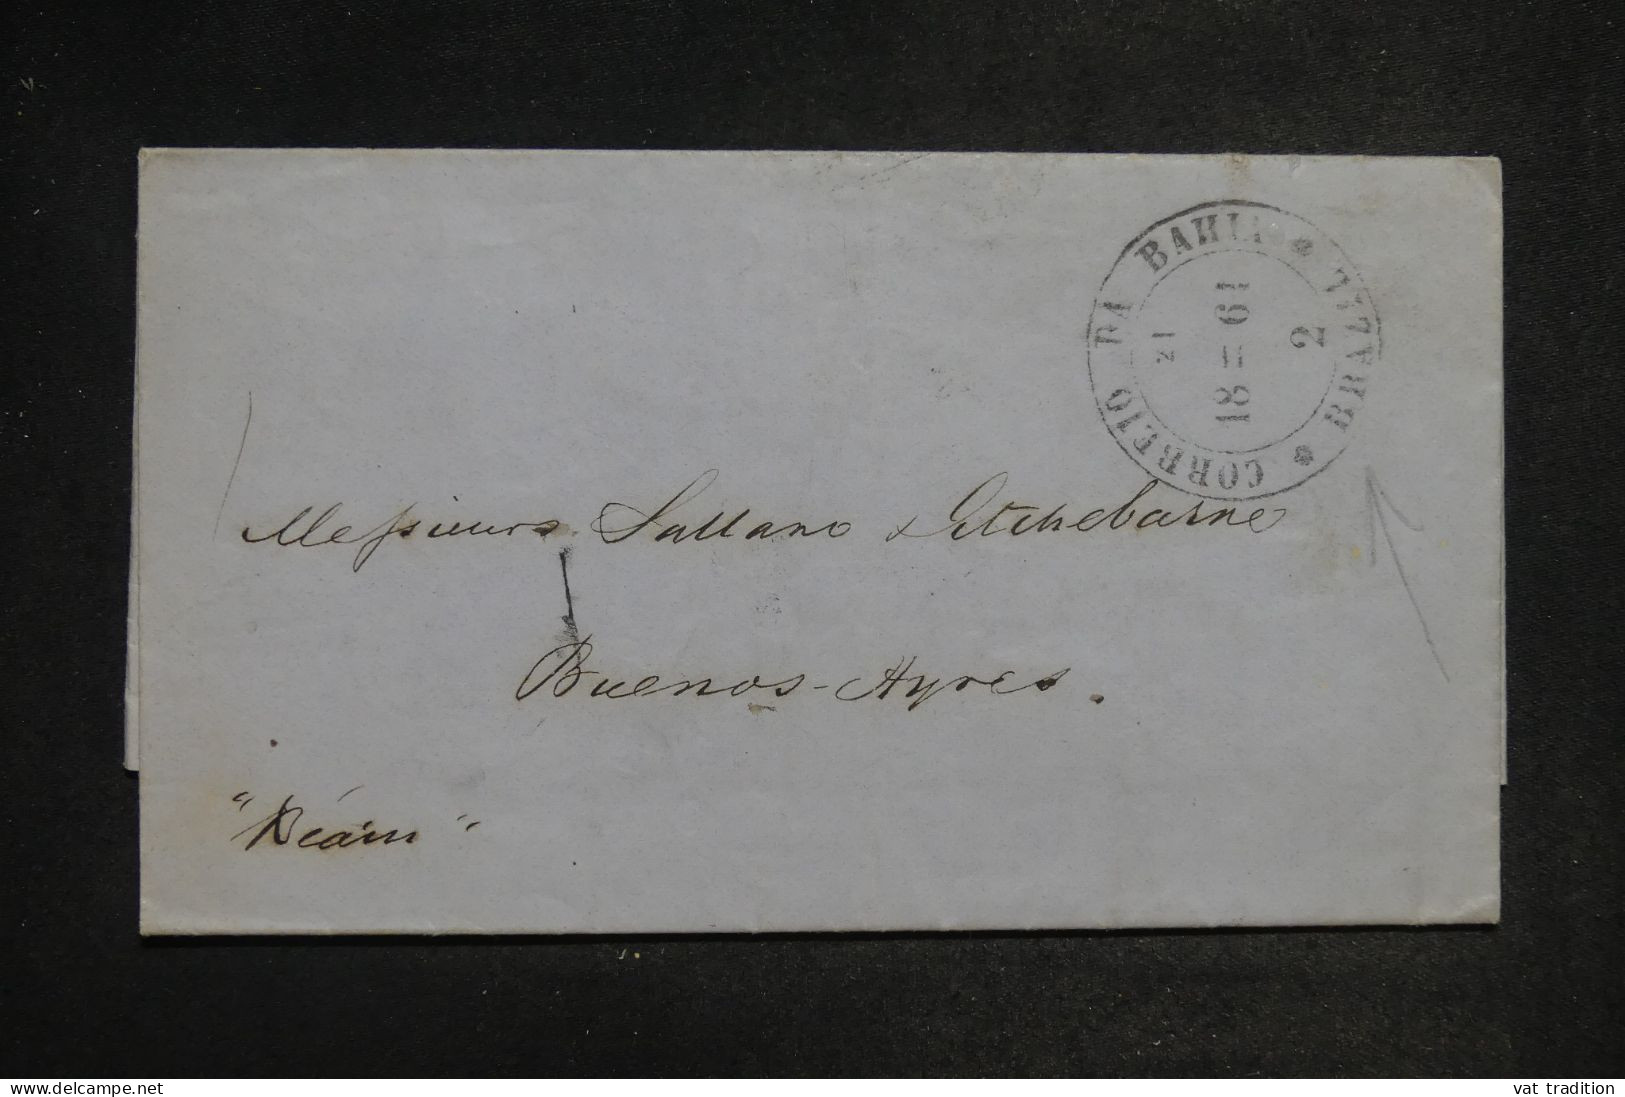 CORREIO DA BAHIA * BRAZIL *
21
18=61
2
Messieurs Sallano & Etchebarne
Buenos-Ayres.
"Béarn"
www.delcampe.net
vat tradition